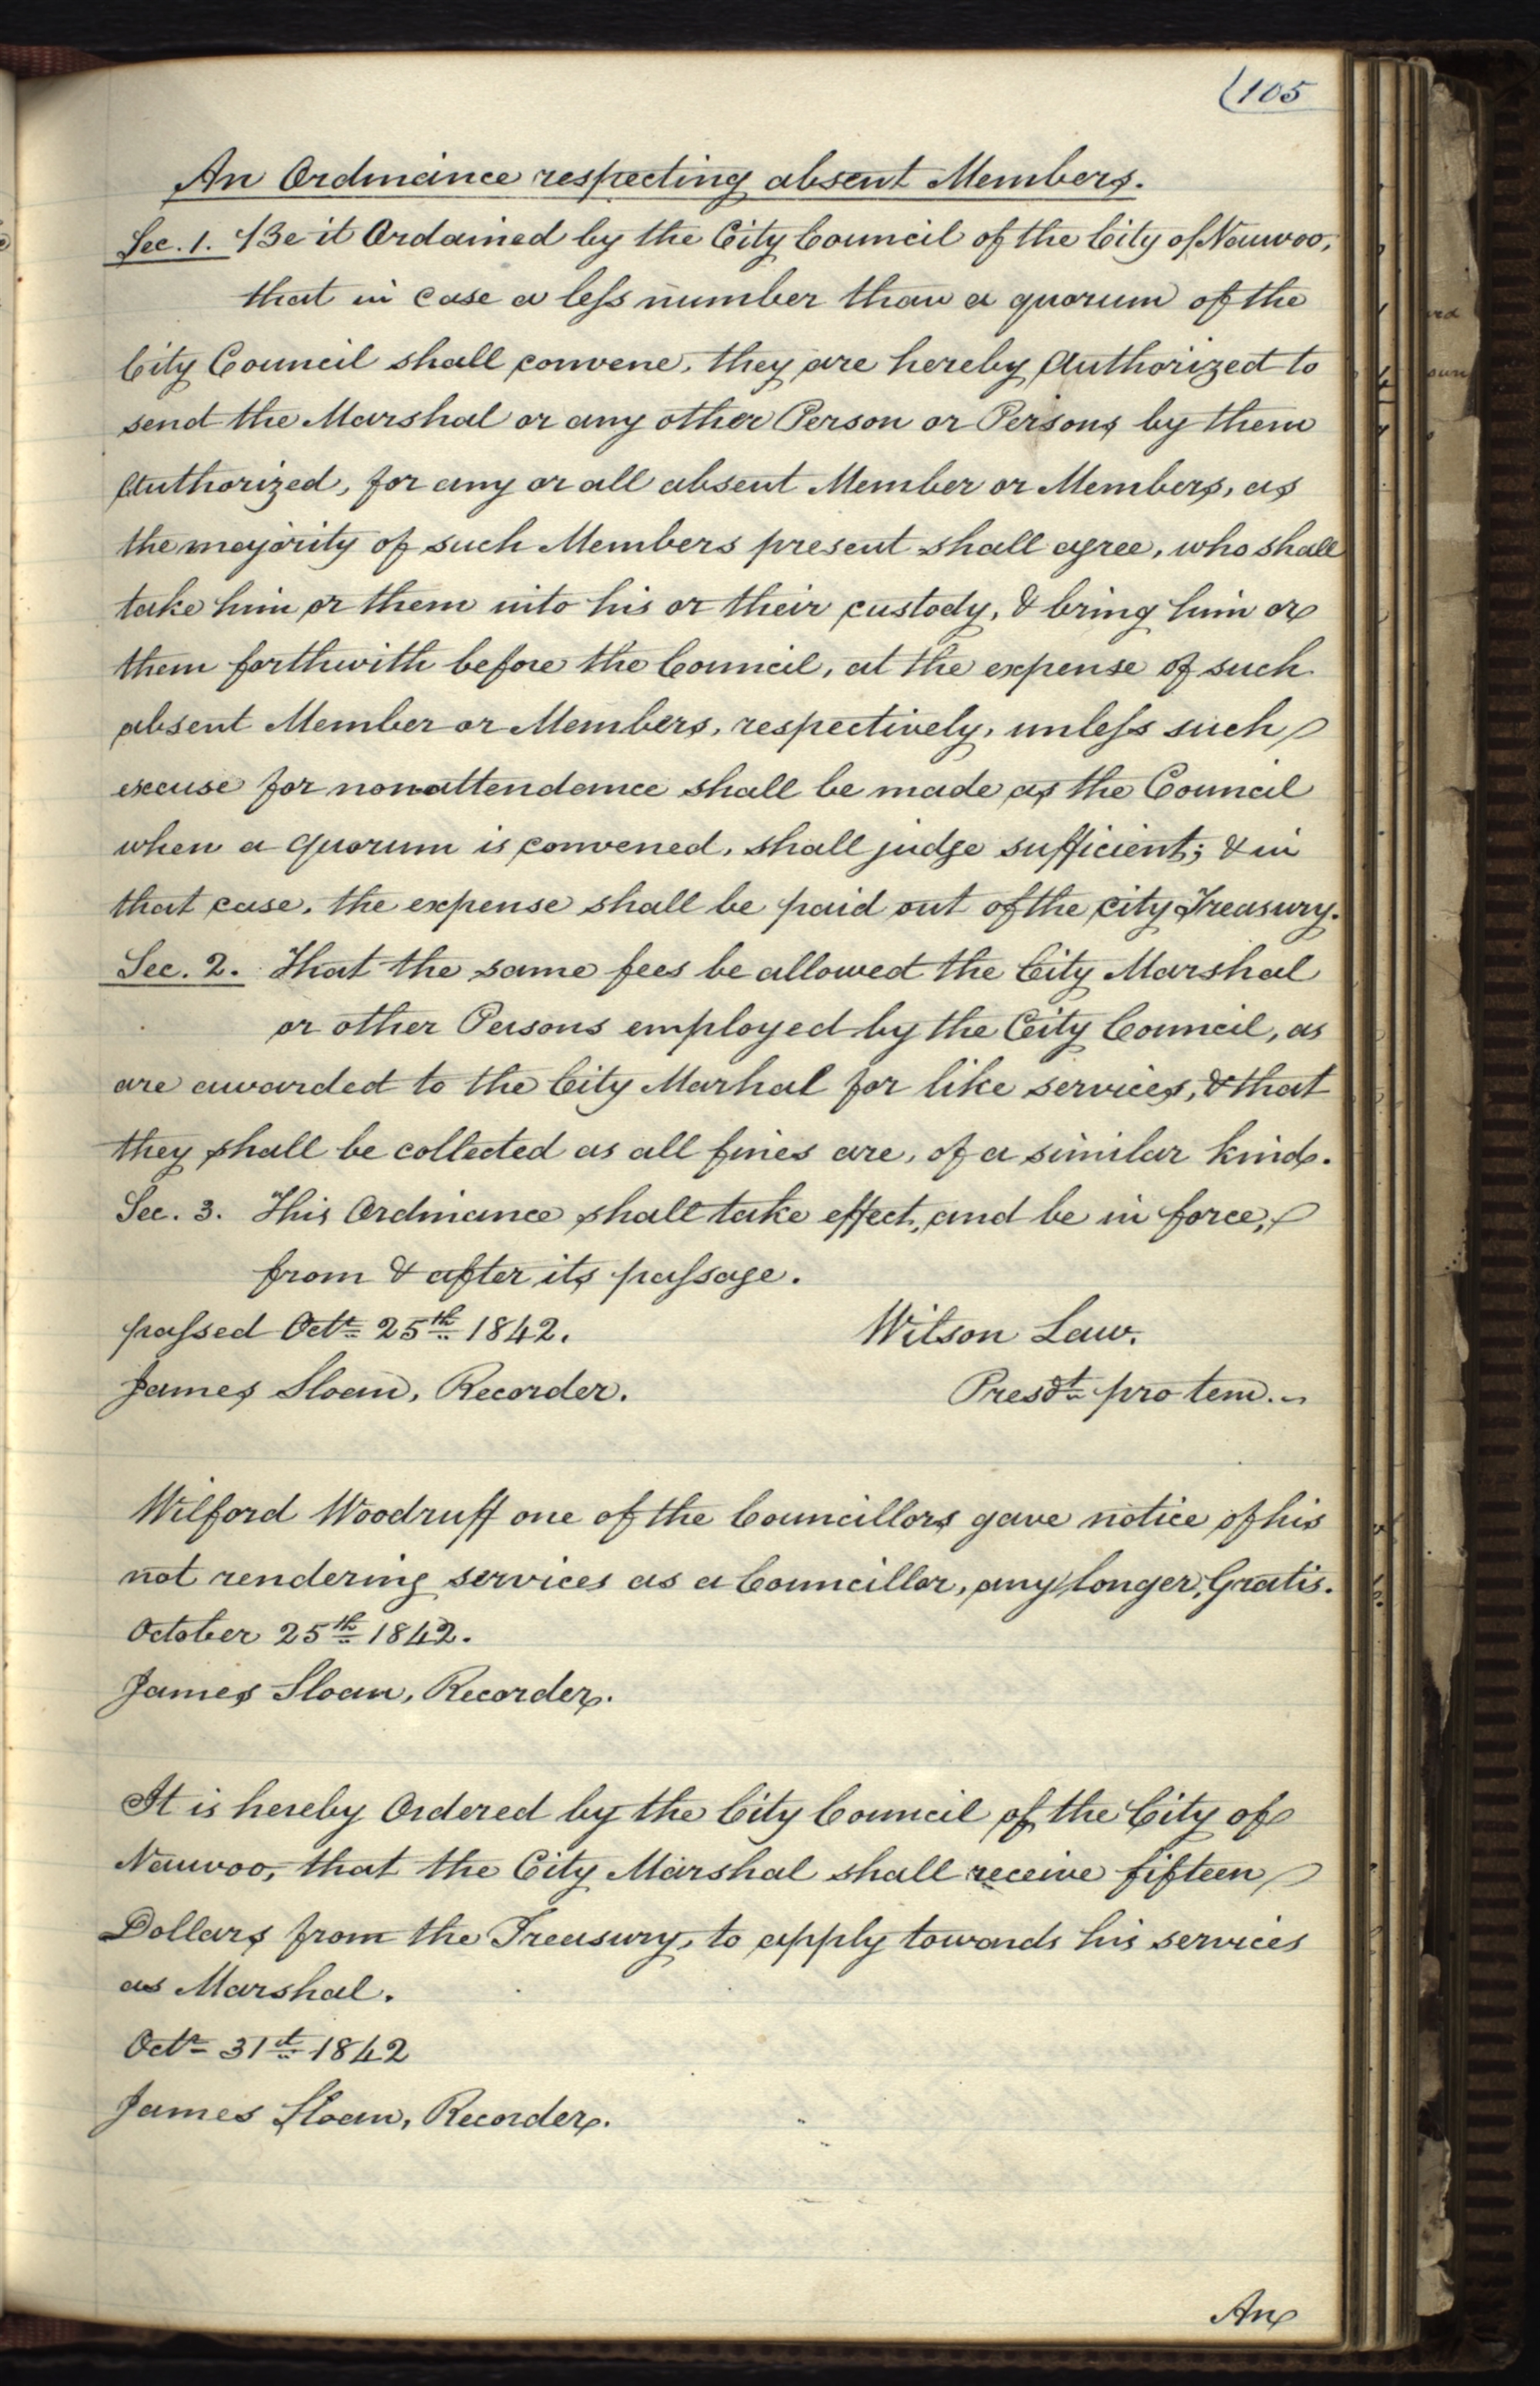 (105
An Ordinance respecting absent Members.
Sec. 1. Be it Ordained by the City Council of the City of Nauvoo,
that in case a less number than a quorum of the
City Council shall convene, they are hereby Authorized to
send the Marshal or any other Person or Persons by them
Authorized, for any or all absent Member or Members, as
the majority of such Members present shall agree, who shall
take him or them into his or their custody, & bring him or
them forthwith before the Council, at the expense of such
absent Member or Members, respectively, unless such
excuse for nonattendance shall be made as the Council
when a quorum is convened, shall judge sufficient; & in
that case, the expense shall be paid out of the city Treasury.
Sec. 2. That the same fees be allowed the City Marshal
or other Persons employed by the City Council, as
are awarded to the City Marhal for like services, & that
they shall be collected as all fines are, of a similar kind.
Sec. 3. This Ordinance shall take effect, and be in force,
from & after its passage.
passed Octr. 25th. 1842. Wilson Law.
James Sloan, Recorder. Presdt. pro tem.
Wilford Woodruff one of the Councillors gave notice of his
not rendering services as a Councillor, any longer, Gratis.
October 25th. 1842.
James Sloan, Recorder.
It is hereby Ordered by the City Council of the City of
Nauvoo, that the City Marshal shall receive fifteen
Dollars from the Treasury, to apply towards his services
as Marshal.
Octr. 31st. 1842
James Sloan, Recorder.
An